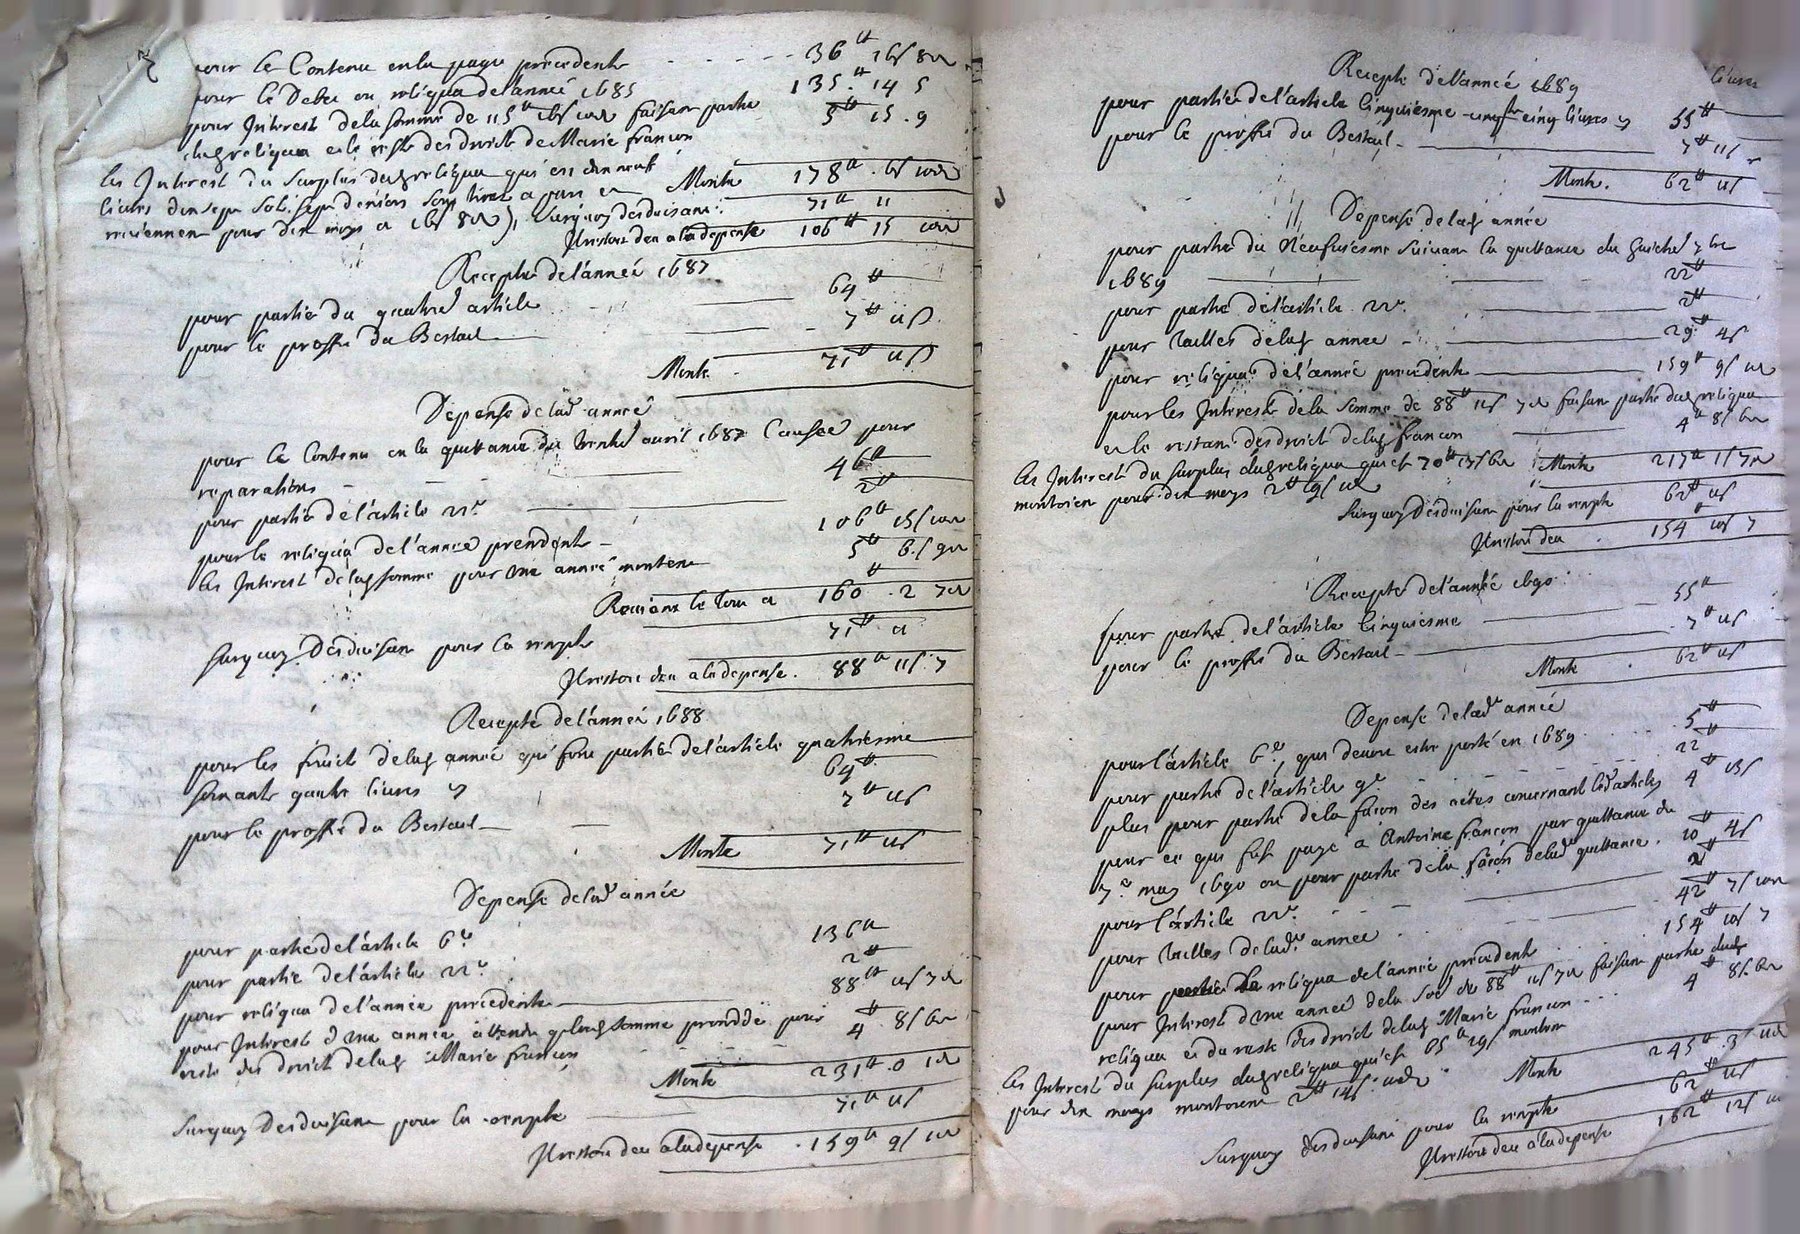 pour le Contenu en la page precedente 36 tt 16 s 8 d
pour le Debet ou reliqua de l'année 1685 135 tt 14 5
pour Interest de la somme de 115 tt 16 s 10 d faisant partie 5 tt 15 . 9
dud reliqua et le reste des droits de Marie francon
les Interest du surplus dud reliqua qui est dix neuf Monte 178 tt . 6 s 10 d
livres dix sept sols sept deniers sont tirés a part et 71 tt 11
reviennent pour dix mois a 16 s 8 d ), surquoy desduisant :
Il restoit deu a la depense 106 tt 15 10 d
Recepte de l'année 1687
pour partie du quatre article 64 tt
pour le proffit du Bestail 7 tt 11 s
Monte 71 tt 11 s
Depense de lad année
pour le Contenu en la quittance du trente avril 1687 Causée pour
reparations 46 tt
pour partie de l'article 22e 2 tt
pour le reliqua de l'année precedente 106 tt 15 s 10 d
les Interest de lad somme pour une année montent 5 tt 6 s 9 d
Revient le tout a 160 tt . 2 7 d
surquoy desduisant pour la recepte 71 tt . 11
Il restoit deu a la depense . 88 tt 11 s 7
Recepte de l'année 1688
pour les fruits de lad année qui font partie de l'article quatriesme
soixante quatre livres 64 tt
pour le proffit du Bestail 7 tt 11 s
Monte 71 tt 11 s
Depense de lad année
pour partie de l'article 6e 136 tt
pour partie de l'article 22e 2 tt
pour reliqua de l'année precedente 88 tt 11 s 7 d
pour Interest d'une année attendu que lad somme procede pour 4 tt . 8 s 6 d
reste des droits de lad Marie francon
Monte 231 tt . 0 1 d
surquoy desduisant pour la recepte 71 tt 11 s
Il restoit deu a la depense . 159 tt 9 s 10 d
Recepte de l'année 1689 livres
pour partie de l'article Cinquiesme cinq livres 55 tt
pour le proffit du Bestail 7 tt 11 s
Monte . 62 tt 11 s
Depense de lad année
pour partie du Neufviesme suivant la quittance du 7bre
1689 22 tt
pour partie de l'article 22e 2 tt
pour tailles de lad année 29 tt 4 s
pour reliqua de l'année precedente 159 tt 9 s
pour les Interests de la somme de 88 tt 11 s 7 d faisant partie dud reliqua
et le restant des droits de lad francon 4 tt 8 s 6 d
les Interest du surplus dud reliqua qui est 70 tt Monte 217 tt 1 s 7 d
montoient pour dix mois 2 tt 19 s
surquoy desduisant pour la recepte 62 tt 11 s
Il restoit deu . 154 tt 10 s 7
Recepte de l'année 1690
pour partie de l'article Cinquiesme 55 tt
pour le proffit du Bestail 7 tt 11 s
Monte . 62 tt 11 s
Depense de lad année
pour l'article 6e, qui devoit estre porté en 1689 5 tt
pour partie de l'article 9e 22 tt
plus pour partie de la façon des actes concernant led article 4 tt 13 s
pour ce qui fut payé a Antoine francon par quittance du
7e may 1690 ou pour partie de la façon de lad quittance . 10 tt 4 s
pour l'article 22e 2 tt
pour tailles de lad année 42 tt 7 s 10 d
pour reliqua de l'année precedente 154 tt 10 s 7
pour Interest d'une année de la soe de 88 tt 11 s 7 d faisant partie dud
reliqua et du reste des droits de lad Marie francon 4 tt 8 s 6 d
les Interest du surplus dud reliqua qui est 65 tt 19 s montent
pour dix moys montoient 2 tt 14 s Monte 245 tt . 3 s
surquoy desduisant pour la recepte 62 tt 11 s
Il restoit deu a la depense 182 tt 12 s